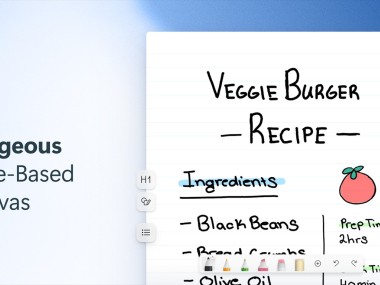 geous
e-Based
vas
VEGGIE BURGER
— RECIPE —
H1
Ingredients
- Black Beans
- Bread Crumbs
- Olive Oil
Prep Time
2hrs